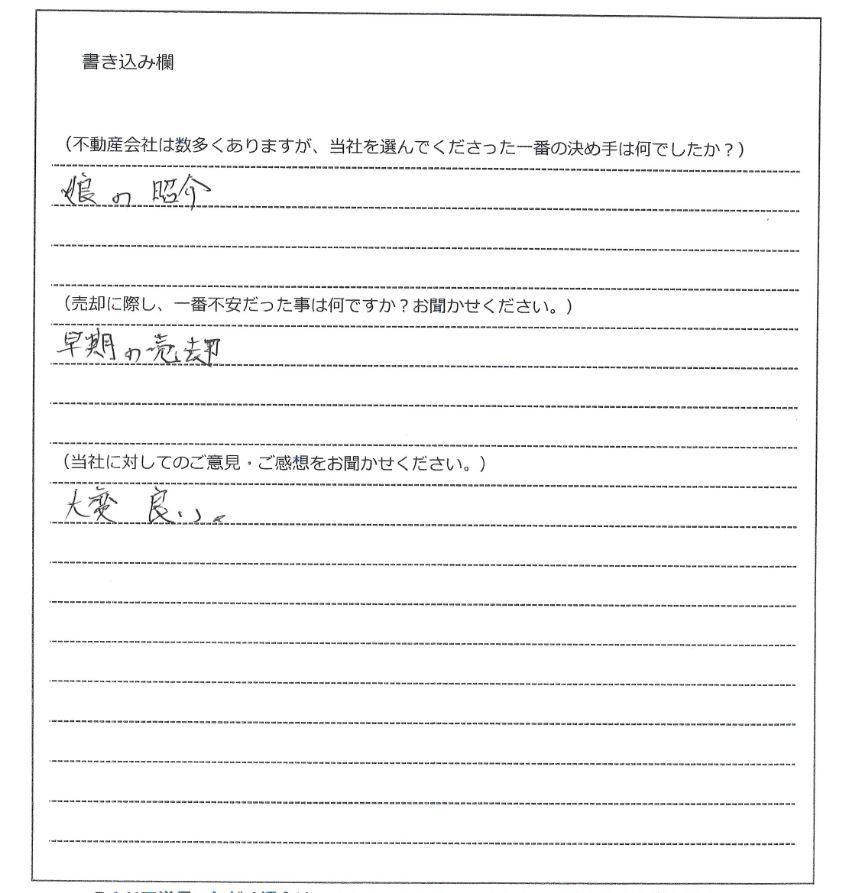 書き込み欄
（不動産会社は数多くありますが、当社を選んでくださった一番の決め手は何でしたか？）
娘の昭介
（売却に際し、一番不安だった事は何ですか？お聞かせください。）
早期の売却
（当社に対してのご意見・ご感想をお聞かせください。）
大変 良い。